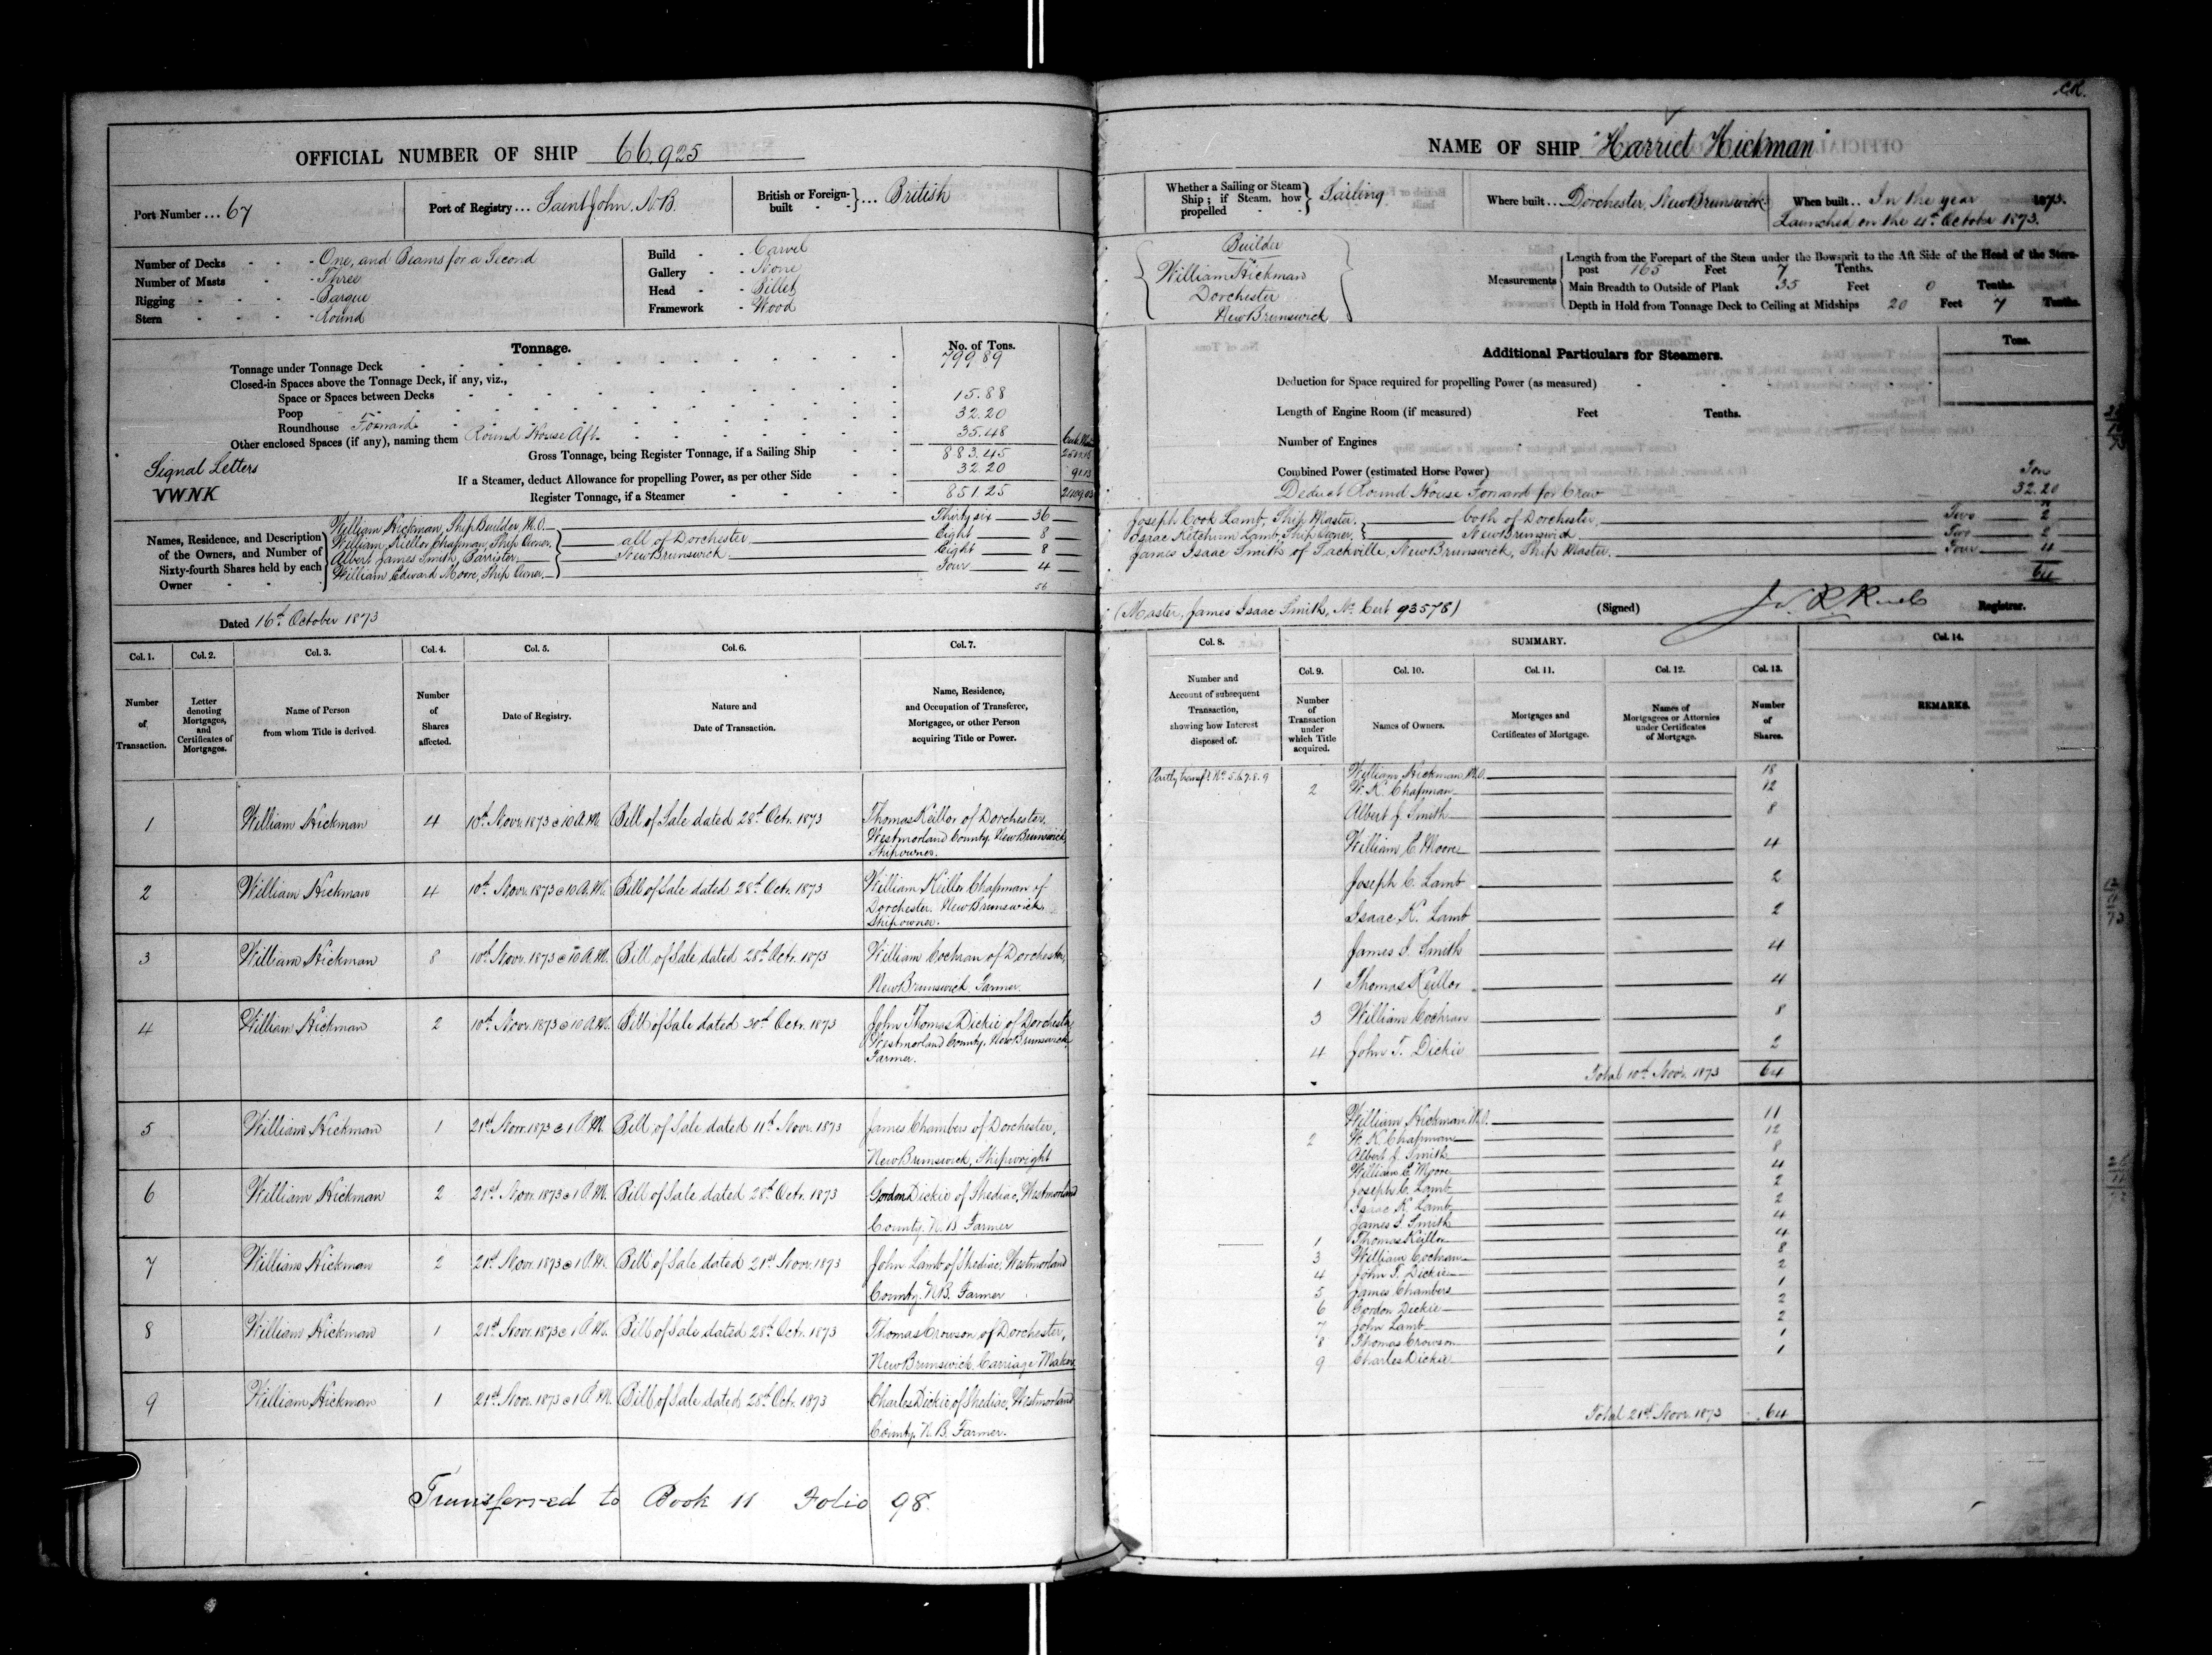 OFFICIAL NUMBER OF SHIP 66,925
Port Number ... 67
Port of Registry ... Saint John, N.B.
British or Foreign-built } ... British
Number of Decks - One, and Beams for a Second
Number of Masts - Three
Rigging - Barque
Stern - Round
Build - Carvel
Gallery - None
Head - Billet
Framework - Wood
Tonnage. No. of Tons.
Tonnage under Tonnage Deck 799.89
Closed-in Spaces above the Tonnage Deck, if any, viz.,
Space or Spaces between Decks
Poop 15.88
Roundhouse Forward 32.20
Other enclosed Spaces (if any), naming them Round House Aft. 35.48
Gross Tonnage, being Register Tonnage, if a Sailing Ship 883.45
If a Steamer, deduct Allowance for propelling Power, as per other Side 32.20
Register Tonnage, if a Steamer 851.25
Signal Letters
VWNK
Names, Residence, and Description of the Owners, and Number of Sixty-fourth Shares held by each Owner
William Hickman, Ship Builder, M.O. Thirty six 36
William Keillor Chapman, Ship Owner, Eight 8
Albert James Smith, Barrister Eight 8
William Edward Moore, Ship Owner Four 4
all of Dorchester
New Brunswick
56
Dated 16th October 1873
Col. 1. Col. 2. Col. 3. Col. 4. Col. 5. Col. 6. Col. 7.
Number of Transaction.
Letter denoting Mortgages, and Certificates of Mortgages.
Name of Person from whom Title is derived.
Number of Shares affected.
Date of Registry.
Nature and Date of Transaction.
Name, Residence, and Occupation of Transferee, Mortgagee, or other Person acquiring Title or Power.
1 William Hickman 4 10th Novr. 1873 @ 10 A.M. Bill of Sale dated 28th Octr. 1873 Thomas Keillor of Dorchester,
Westmorland County, New Brunswick,
Shipowner.
2 William Hickman 4 10th Novr. 1873 @ 10 A.M. Bill of Sale dated 28th Octr. 1873 William Keillor Chapman of
Dorchester New Brunswick,
Shipowner.
3 William Hickman 8 10th Novr. 1873 @ 10 A.M. Bill of Sale dated 28th Octr. 1873 William Cochran of Dorchester,
New Brunswick Farmer.
4 William Hickman 2 10th Novr. 1873 @ 10 A.M. Bill of Sale dated 30th Octr. 1873 John Thomas Dickie of Dorchester,
Westmorland County, New Brunswick,
Farmer.
5 William Hickman 1 21st Novr. 1873 @ 1 P.M. Bill of Sale dated 11th Novr. 1873 James Chambers of Dorchester,
New Brunswick, Shipwright
6 William Hickman 2 21st Novr. 1873 @ 1 P.M. Bill of Sale dated 28th Octr. 1873 Gordon Dickie of Shediac, Westmorland
County. N.B Farmer
7 William Hickman 2 21st Novr. 1873 @ 1 P.M. Bill of Sale dated 21st Novr. 1873 John Lamb of Shediac, Westmorland
County. N.B. Farmer
8 William Hickman 1 21st Novr. 1873 @ 1 P.M. Bill of Sale dated 28th Octr. 1873 Thomas Crowson of Dorchester,
New Brunswick, Carriage Maker
9 William Hickman 1 21st Novr. 1873 @ 1 P.M. Bill of Sale dated 28th Octr. 1873 Charles Dickie of Shediac, Westmorland
County. N.B. Farmer.
Transferred to Book 11 Folio 98.
NAME OF SHIP "Harriet Hickman"
Whether a Sailing or Steam Ship ; if Steam, how propelled } Sailing
Where built ... Dorchester, New Brunswick
When built ... In the year 1873.
Launched on the 4th October 1873.
Builder
William Hickman
Dorchester
New Brunswick
Measurements
Length from the Forepart of the Stem under the Bowsprit to the Aft Side of the Head of the Stern-
post 165 Feet 7 Tenths.
Main Breadth to Outside of Plank 35 Feet 0 Tenths.
Depth in Hold from Tonnage Deck to Ceiling at Midships 20 Feet 7 Tenths.
Additional Particulars for Steamers. Tons.
Deduction for Space required for propelling Power (as measured)
Length of Engine Room (if measured) Feet Tenths.
Number of Engines
Combined Power (estimated Horse Power)
Deduct Round House Forward for Crew 32.20
Joseph Cook Lamb, Ship Master. both of Dorchester Two 2
Isaac Ketchum Lamb, Ship Owner, New Brunswick Two 2
James Isaac Smith of Sackville, New Brunswick, Ship Master. Four 4
64
(Master, James Isaac Smith, No. Cert 93578) (Signed) Registrar.
Col. 8. SUMMARY. Col. 14.
Col. 9. Col. 10. Col. 11. Col. 12. Col. 13.
Number and Account of subsequent Transaction, showing how Interest disposed of.
Number of Transaction under which Title acquired.
Names of Owners.
Mortgages and Certificates of Mortgage.
Names of Mortgagees or Attornies under Certificates of Mortgage.
Number of Shares.
REMARKS.
Partly transf. No. 5.6.7.8.9
William Hickman M.O. 18
2 W. K. Chapman 12
Albert J. Smith 8
William E. Moore 4
Joseph C. Lamb 2
Isaac K. Lamb 2
James I. Smith 4
1 Thomas Keillor 4
3 William Cochran 8
4 John T. Dickie 2
Total 10th Novr. 1873 64
William Hickman M.O. 11
2 W. K. Chapman 12
Albert J. Smith 8
William E. Moore 4
Joseph C. Lamb 2
Isaac K. Lamb 2
James I. Smith 4
1 Thomas Keillor 4
3 William Cochran 8
4 John T. Dickie 2
5 James Chambers 1
6 Gordon Dickie 2
7 John Lamb 2
8 Thomas Crowson 1
9 Charles Dickie 1
Total 21st Novr. 1873 64